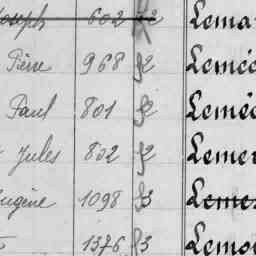 Joseph 602 92 Lema
Pierre 968 92 Lemée
Paul 801 92 Lemée
Jules 832 92 Lemer
Eugène 1098 93 Lemer
1376 93 Lemo